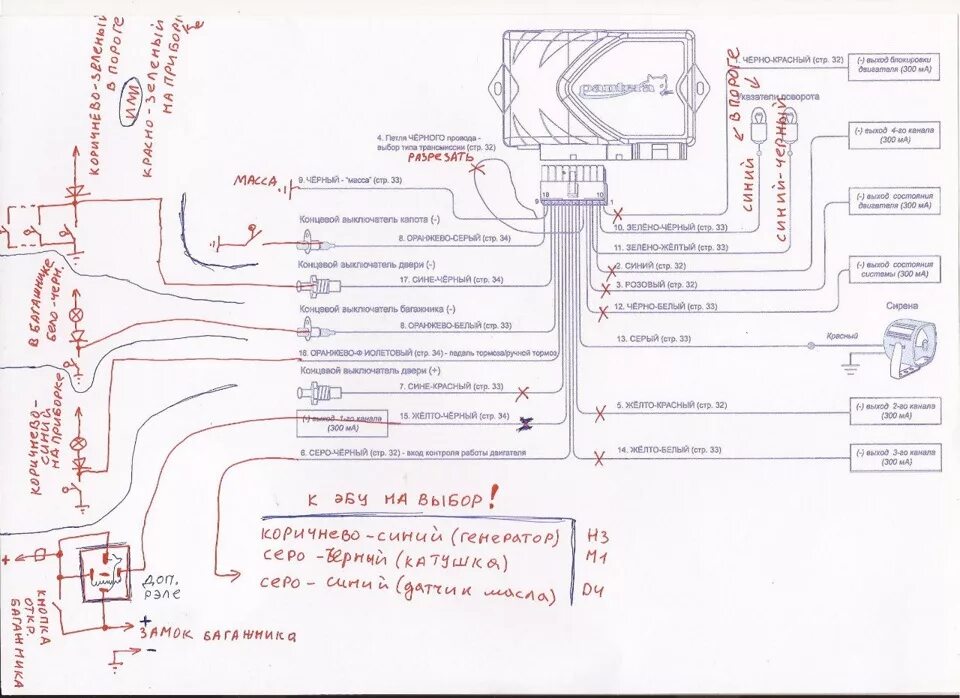 КОРИЧНЕВО-ЗЕЛЕНЫЙ
В ПОРОГЕ
ИЛИ
КРАСНО-ЗЕЛЕНЫЙ
НА ПРИБОРКЕ
pantera
4. Петля ЧЁРНОГО провода -
выбор типа трансмиссии (стр. 32)
РАЗРЕЗАТЬ
МАССА
9. ЧЁРНЫЙ - "масса" (стр. 33)
9
18
10
1
1. ЧЁРНО-КРАСНЫЙ (стр. 32)
(-) выход блокировки
двигателя (300 мА)
Указатели поворота
В ПОРОГЕ
СИНИЙ
СИНИЙ-ЧЕРНЫЙ
(-) выход 4-го канала
(300 мА)
(-) выход состояния
двигателя (300 мА)
(-) выход состояния
системы (300 мА)
Концевой выключатель капота (-)
8. ОРАНЖЕВО-СЕРЫЙ (стр. 34)
10. ЗЕЛЁНО-ЧЁРНЫЙ (стр. 33)
11. ЗЕЛЁНО-ЖЁЛТЫЙ (стр. 33)
Концевой выключатель двери (-)
17. СИНЕ-ЧЁРНЫЙ (стр. 34)
2. СИНИЙ (стр. 32)
3. РОЗОВЫЙ (стр. 32)
12. ЧЁРНО-БЕЛЫЙ (стр. 33)
Концевой выключатель багажника (-)
8. ОРАНЖЕВО-БЕЛЫЙ (стр. 33)
Сирена
Красный
13. СЕРЫЙ (стр. 33)
В БАГАЖНИКЕ
БЕЛО-ЧЕРН.
16. ОРАНЖЕВО-ФИОЛЕТОВЫЙ (стр. 34) - педаль тормоза/ручной тормоз
Концевой выключатель двери (+)
7. СИНЕ-КРАСНЫЙ (стр. 33)
КОРИЧНЕВО-
СИНИЙ
НА ПРИБОРКЕ
(-) выход 1-го канала
(300 мА)
15. ЖЁЛТО-ЧЁРНЫЙ (стр. 34)
5. ЖЁЛТО-КРАСНЫЙ (стр. 32)
(-) выход 2-го канала
(300 мА)
6. СЕРО-ЧЁРНЫЙ (стр. 32) - вход контроля работы двигателя
14. ЖЁЛТО-БЕЛЫЙ (стр. 33)
(-) выход 3-го канала
(300 мА)
К ЭБУ НА ВЫБОР!
КОРИЧНЕВО-СИНИЙ (генератор) Н3
СЕРО-ЧЕРНЫЙ (КАТУШКА) М1
СЕРО-СИНИЙ (датчик масла) D4
+
ДОП.
РЭЛЕ
КНОПКА
ОТКР.
БАГАЖНИКА
+
ЗАМОК БАГАЖНИКА
-